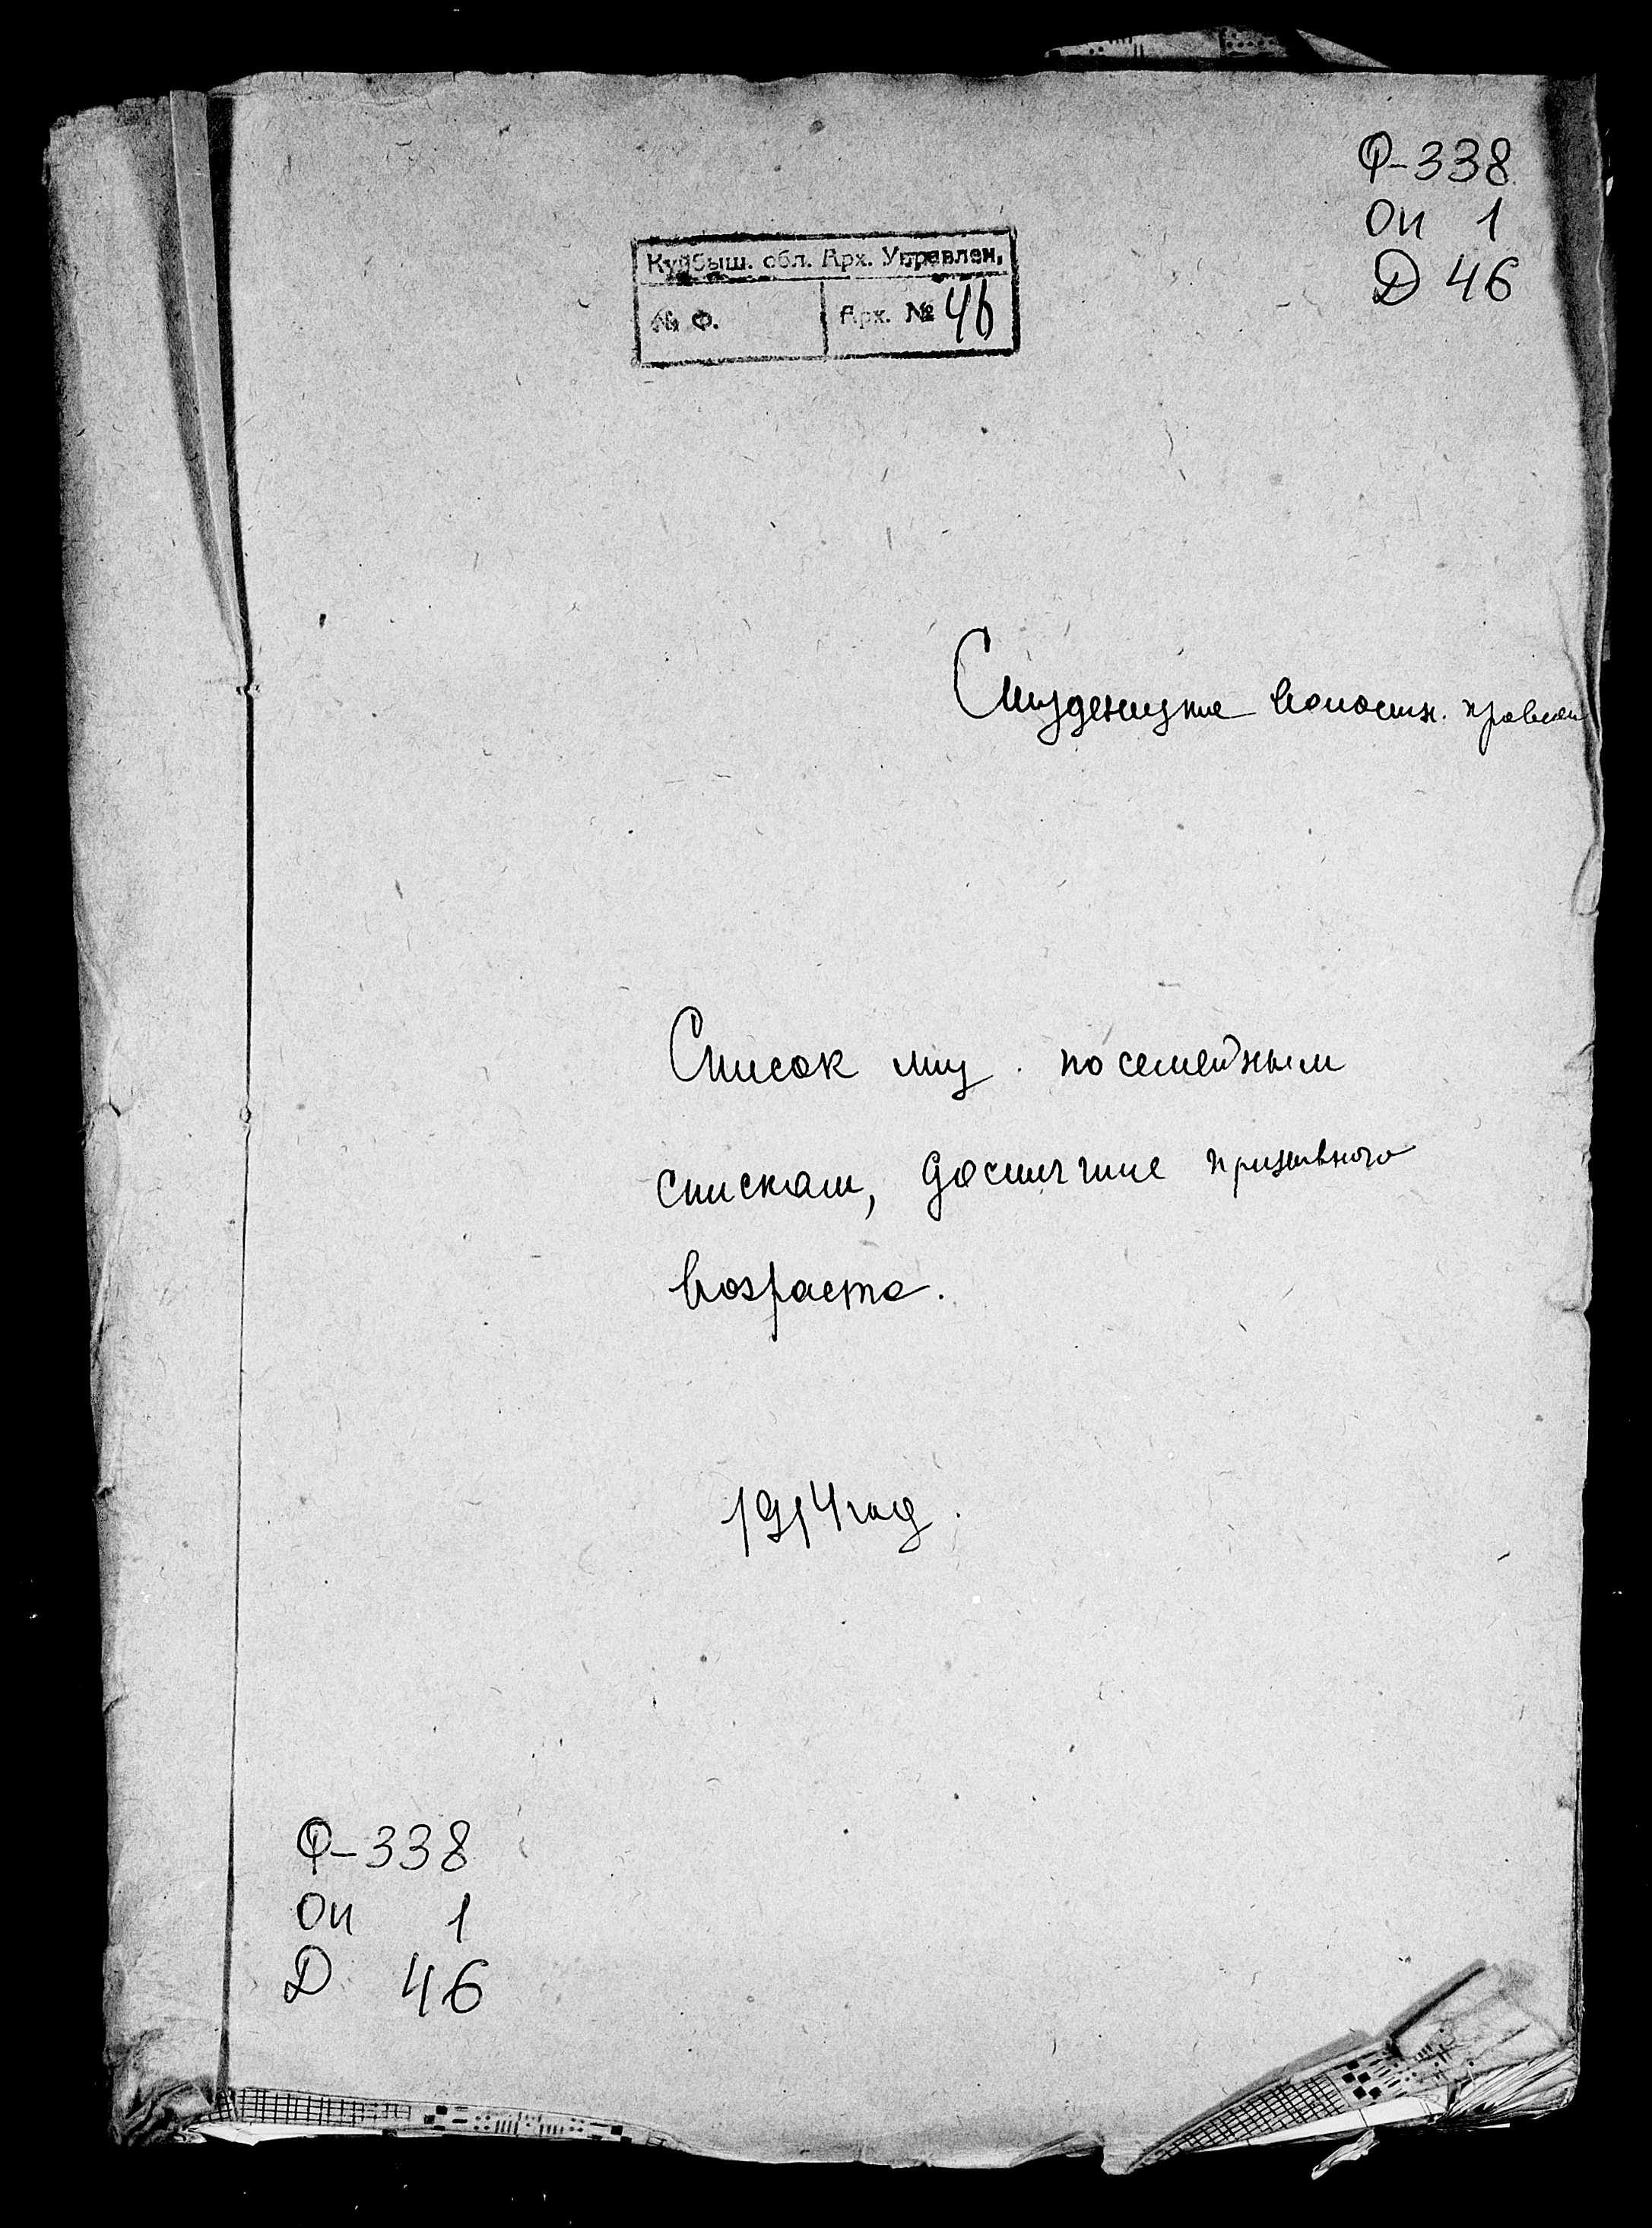 Ф-338
Оп 1
Д 46
Куйбыш. обл. Арх. Управлен.
№ Ф.
Арх. № 46
Студенецкое волостн. правлен
Список лиц по семейным
спискам, достигшие призывного
возраста.
1914 год.
Ф-338
Оп 1
Д 46